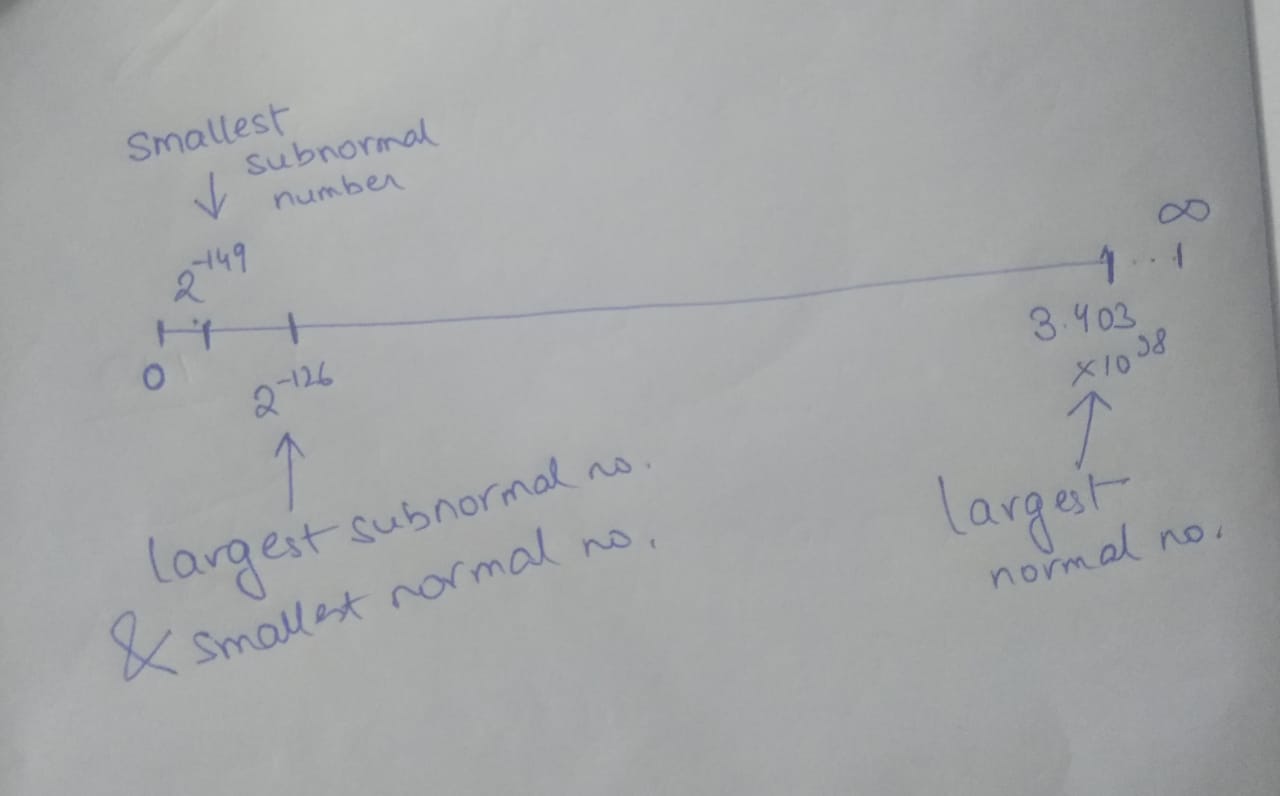 Smallest
subnormal
number
↓
2⁻¹⁴⁹
∞
0
2⁻¹²⁶
3.403
×10³⁸
↑
↑
largest subnormal no.
& smallest normal no.
largest
normal no.